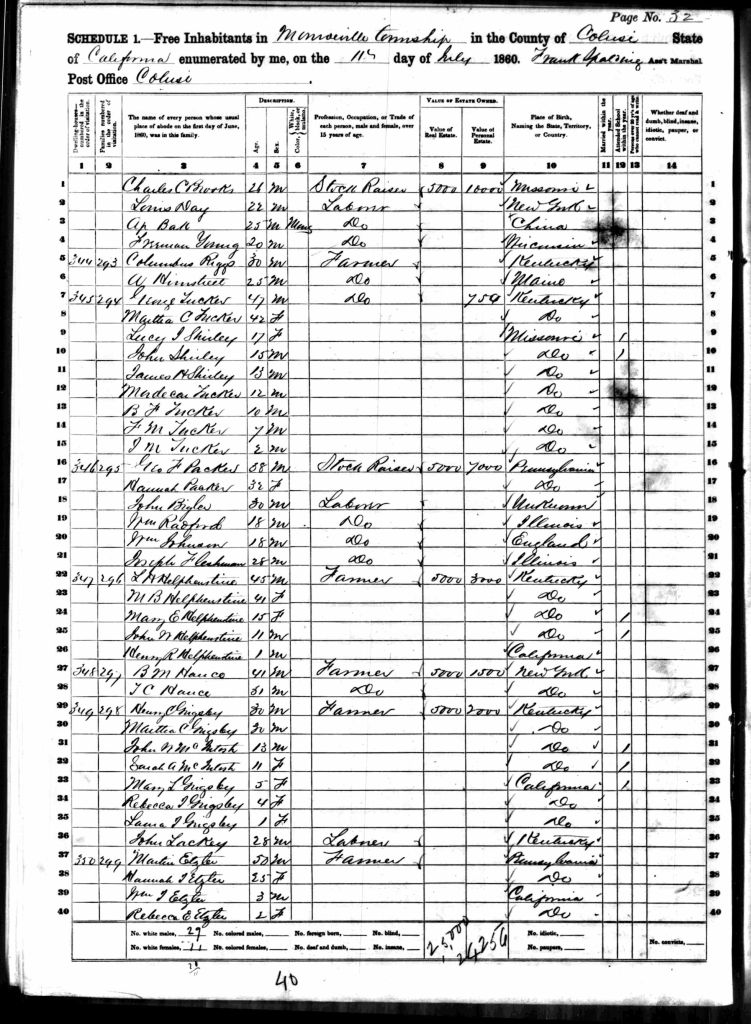 Page No. 32
SCHEDULE 1.—Free Inhabitants in Monroeville township in the County of Colusi State
of California enumerated by me, on the 11th day of July 1860. Frank Spalding Ass't Marshal
Post Office Colusi
Dwelling-houses—numbered in the order of visitation.
Families numbered in the order of visitation.
The name of every person whose usual place of abode on the first day of June, 1860, was in this family.
DESCRIPTION.
Age.
Sex.
Color, White, black, or mulatto.
Profession, Occupation, or Trade of each person, male and female, over 15 years of age.
VALUE OF ESTATE OWNED.
Value of Real Estate.
Value of Personal Estate.
Place of Birth, Naming the State, Territory, or Country.
Married within the year.
Attended School within the year.
Persons over 20 y'rs of age who cannot read & write.
Whether deaf and dumb, blind, insane, idiotic, pauper, or convict.
1 2 3 4 5 6 7 8 9 10 11 12 13 14
1 Charles C Brooks 26 m Stock Raiser 5000 10000 Missouri 1
2 Louis Day 22 m Labour New York 2
3 Ap Bak 25 m Mong Do China 3
4 Furman Young 20 m Do Wisconsin 4
5 344 293 Columbus Riggs 30 m Farmer Kentucky 5
6 Himstreet 25 m Do Maine 6
7 345 294 Tucker 47 m Do 750 Kentucky 7
8 Martha C Tucker 42 F Do 8
9 Lucy J Shirley 17 F Missouri 1 9
10 John Shirley 15 m Do 1 10
11 James H Shirley 13 m Do 11
12 Mordecai Tucker 12 m Do 12
13 B F Tucker 10 m Do 13
14 F M Tucker 7 m Do 14
15 J M Tucker 2 m Do 15
16 346 295 Geo F Packer 38 m Stock Raiser 5000 7000 Pennsylvania 16
17 Hannah Packer 32 F Do 17
18 John Bigler 30 m Labour Unknown 18
19 Wm Radford 18 m Do Illinois 19
20 Wm Johnson 18 m Do England 20
21 Joseph Fleshman 28 m Do Illinois 21
22 347 296 L H Helphenstine 45 m Farmer 5000 3000 Kentucky 22
23 M B Helphenstine 41 F Do 23
24 Mary E Helphenstine 15 F Do 1 24
25 John W Helphenstine 11 m Do 1 25
26 Henry R Helphenstine 1 m California 26
27 348 297 B M Hance 41 m Farmer 5000 1500 New York 27
28 T C Hance 31 m Do Do 28
29 349 298 Henry C Grigsby 30 m Farmer 5000 2000 Kentucky 29
30 Martha C Grigsby 30 m Do 30
31 John N McIntosh 13 m Do 1 31
32 Sarah A McIntosh 11 F Do 1 32
33 Mary L Grigsby 5 F California 1 33
34 Rebecca J Grigsby 4 F Do 34
35 Laura J Grigsby 1 F Do 35
36 John Lackey 28 m Laborer Kentucky 36
37 350 299 Martin Etzler 50 m Farmer Pennsylvania 37
38 Hannah J Etzler 25 F Do 38
39 Wm J Etzler 3 m California 39
40 Rebecca E Etzler 2 F Do 40
No. white males, 29 No. colored males, No. foreign born, No. blind, 25,000 24,256 No. idiotic,
No. white females, 11 No. colored females, No. deaf and dumb, No. insane, No. paupers, No. convicts,
40